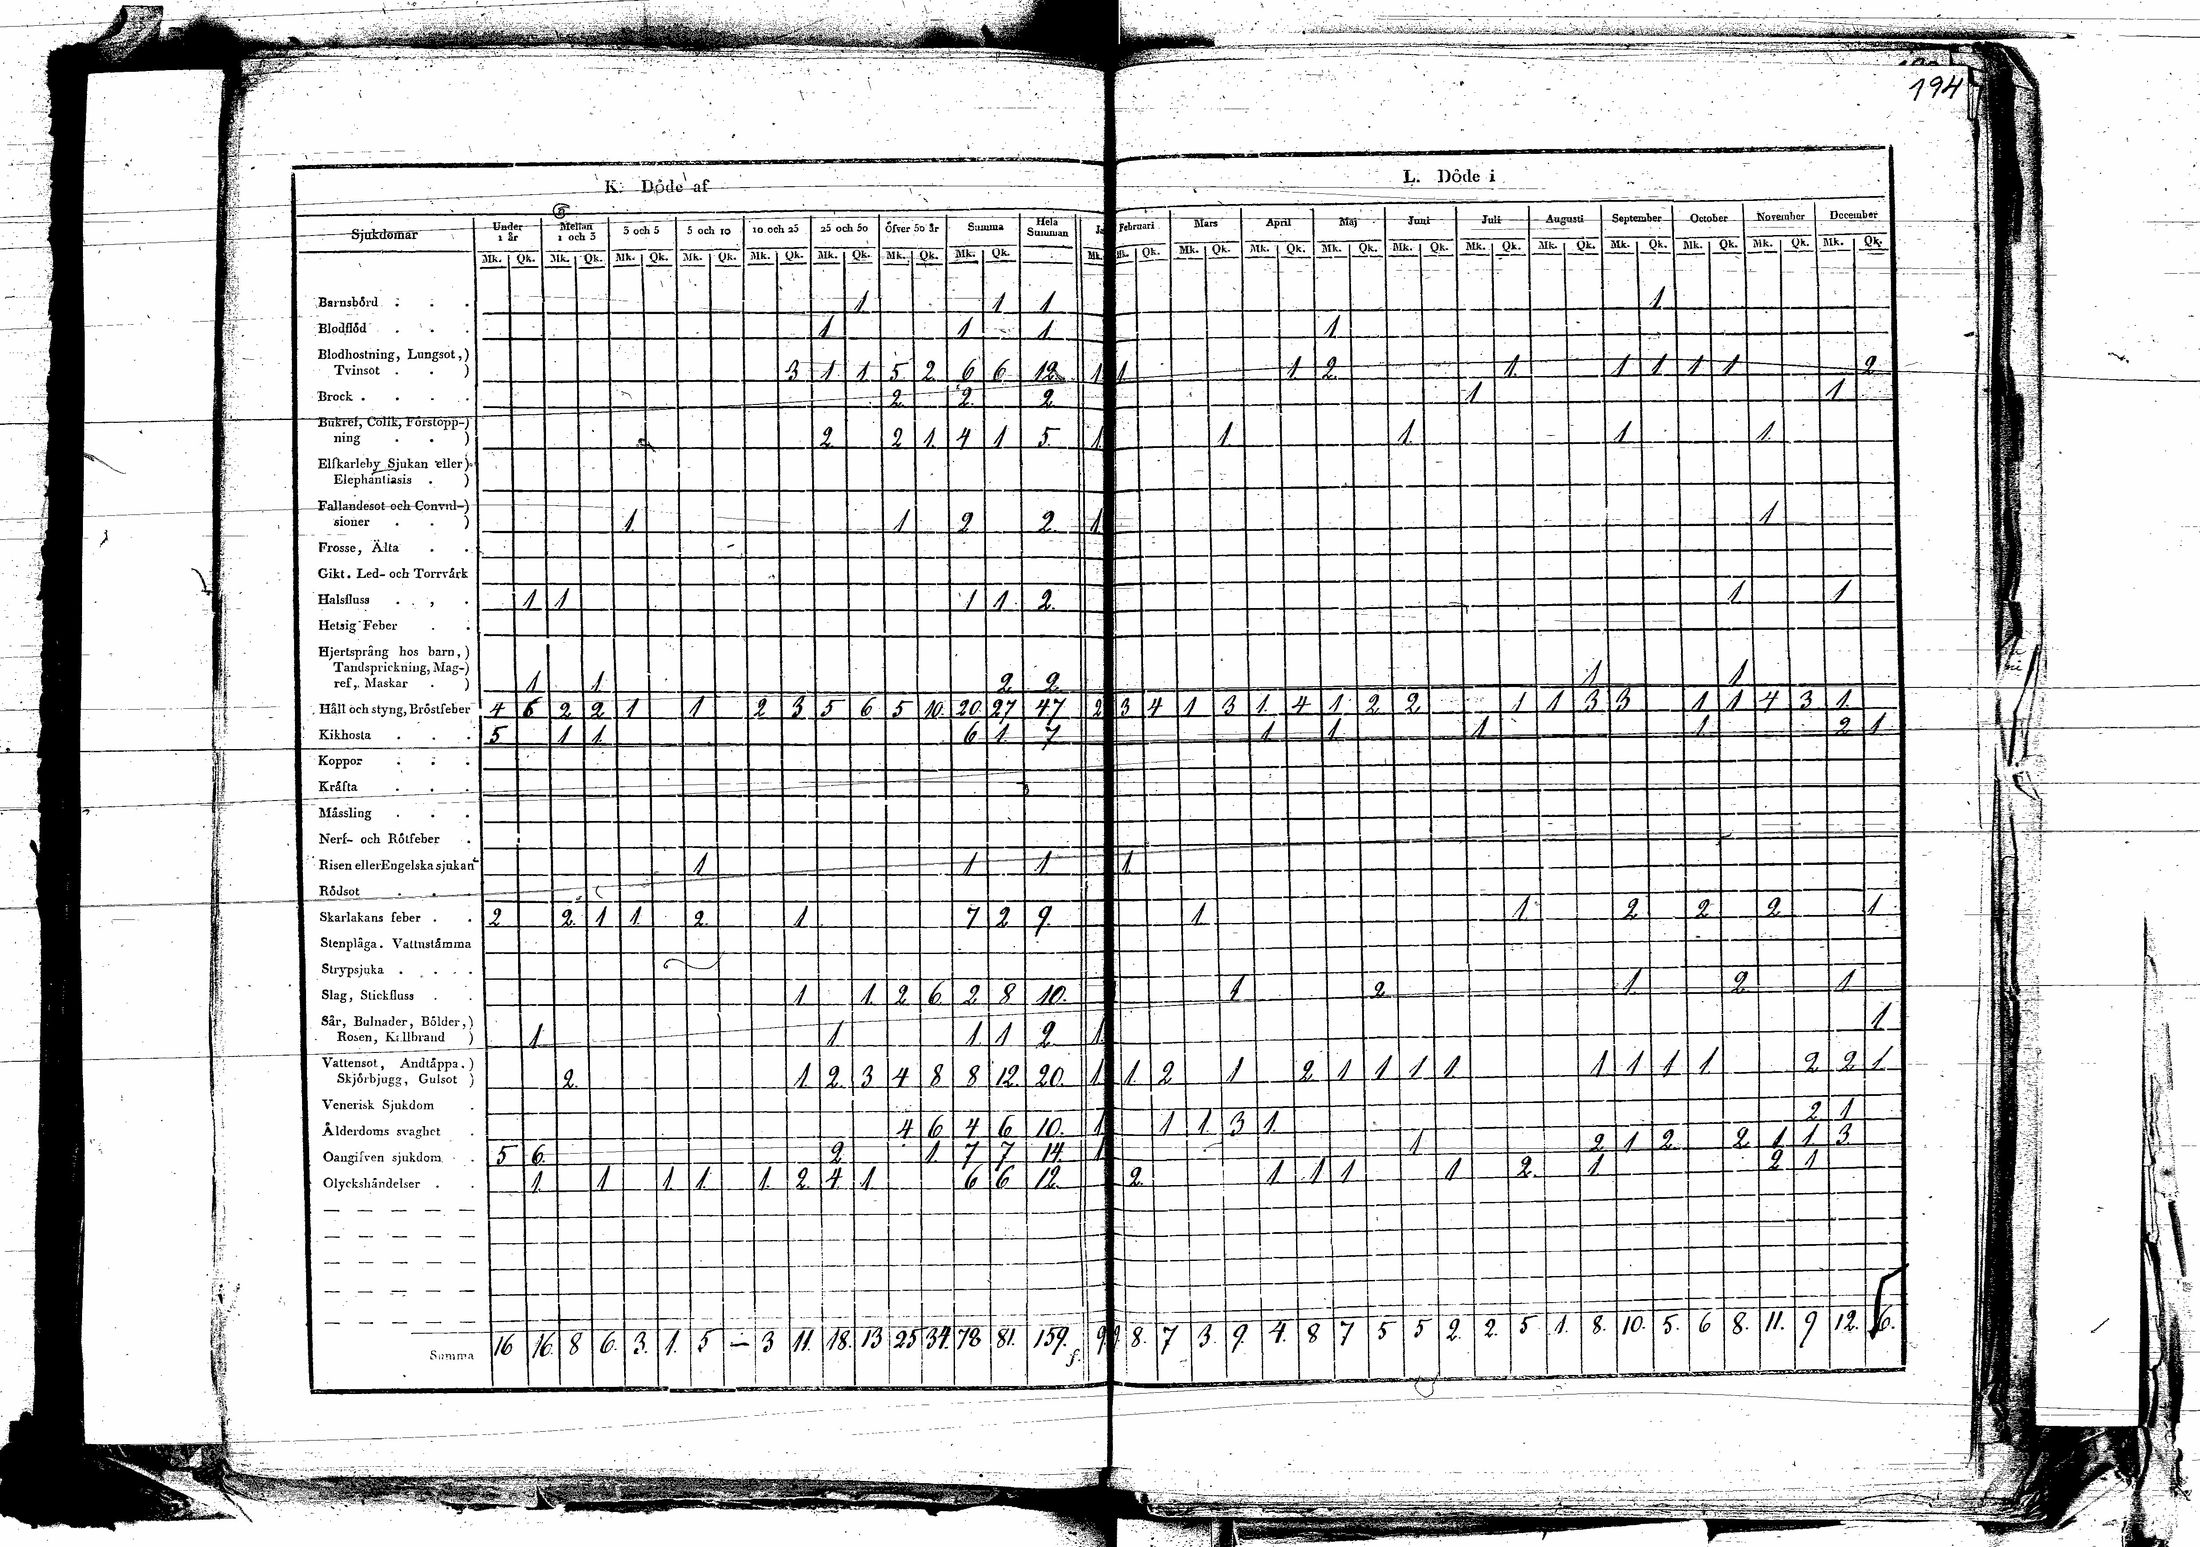 194
K. Döde af L. Döde i
Sjukdomar Under 1 år Mellan 1 och 3 3 och 5 5 och 10 10 och 25 25 och 50 Öfver 50 år Summa Hela Summan Februari Mars April Maj Juni Juli Augusti September October November December
Mk. Qk. Mk. Qk. Mk. Qk. Mk. Qk. Mk. Qk. Mk. Qk. Mk. Qk. Mk. Qk. Mk. Mk. Qk. Mk. Qk. Mk. Qk. Mk. Qk. Mk. Qk. Mk. Qk. Mk. Qk. Mk. Qk. Mk. Qk. Mk. Qk. Mk. Qk.
Barnsbörd . . . 1 1 1 1
Blodflöd . . . 1 1 1 1
Blodhostning, Lungsot,)
Tvinsot . . ) 3 1 1 5 2 6 6 12 1 1 1 2 1 1 1 1 1 2
Brock . . . . 2 2 2 1 1
Bukref, Colik, Förstopp-)
ning . . ) 2 2 1 4 1 5 1 1 1 1 1
Elfkarleby Sjukan eller)
Elephantiasis . )
Fallandesot och Convul-)
sioner . . ) 1 1 2 2 1 1
Frosse, Älta . .
Gikt. Led- och Torrvärk
Halsfluss . , . 1 1 1 1 2 1 1
Hetsig Feber . .
Hjertsprång hos barn,)
Tandsprickning, Mag-)
ref, Maskar . ) 1 1 2 2 1 1
Håll och styng, Bröstfeber 4 6 2 2 1 1 2 3 5 6 5 10 20 27 47 2 3 4 1 3 1 4 1 2 2 1 1 3 3 1 1 4 3 1
Kikhosta . . . 5 1 1 6 1 7 1 1 1 1 2 1
Koppor . . .
Kräfta . . .
Mässling . . .
Nerf- och Rötfeber .
Risen eller Engelska sjukan 1 1 1 1
Rödsot . .
Skarlakans feber . . 2 2 1 1 2 1 7 2 9 1 1 2 2 2 1
Stenplåga. Vattustämma
Strypsjuka . . . .
Slag, Stickfluss . . 1 1 2 6 2 8 10 1 2 1 2 1
Sår, Bulnader, Bölder,)
Rosen, Kallbrand ) 1 1 1 1 2 1 1
Vattensot, Andtäppa.)
Skjörbjugg, Gulsot ) 2 1 2 3 4 8 8 12 20 1 1 2 1 2 1 1 1 1 1 1 1 1 2 2 1
Venerisk Sjukdom .
Ålderdoms svaghet . 4 6 4 6 10 1 1 1 3 1 2 1
Oangifven sjukdom . 5 6 2 1 7 7 14 1 1 2 1 2 2 1 1 3
Olyckshändelser . . 1 1 1 1 1 2 4 1 6 6 12 2 1 1 1 1 2 1 2 1
Summa 16 16. 8 6. 3. 1. 5 — 3 11. 18. 13 25 34. 78 81. 159. 9 8. 7 3. 9. 4. 8 7 5 5 2. 2. 5. 1. 8. 10. 5. 6 8. 11. 9 12. 6.